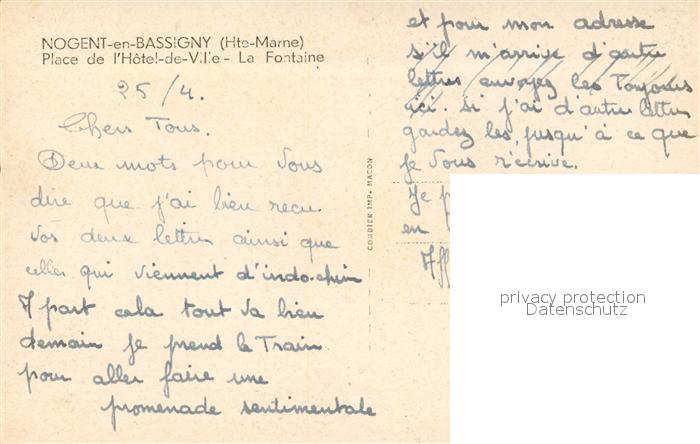 NOGENT-en-BASSIGNY (Hte-Marne)
Place de l'Hôtel-de-Ville - La Fontaine
25/4.
Chers Tous.
Deux mots pour Vous
dire que j'ai bien recu
vos deux lettres ainsi que
celles qui viennent d'indo.chine
A part cela tout va bien
demain je prend le Train
pour aller faire une
promenade sentimentale
COMBIER IMP. MACON
et pour mon adresse
s'il m'arrive d'autre
lettres envoyez les Toujours
ici. si j'ai d'autre lettres
gardez les, jusqu'à ce que
je Vous r'écrive.
Je
en
Aff
privacy protection
Datenschutz